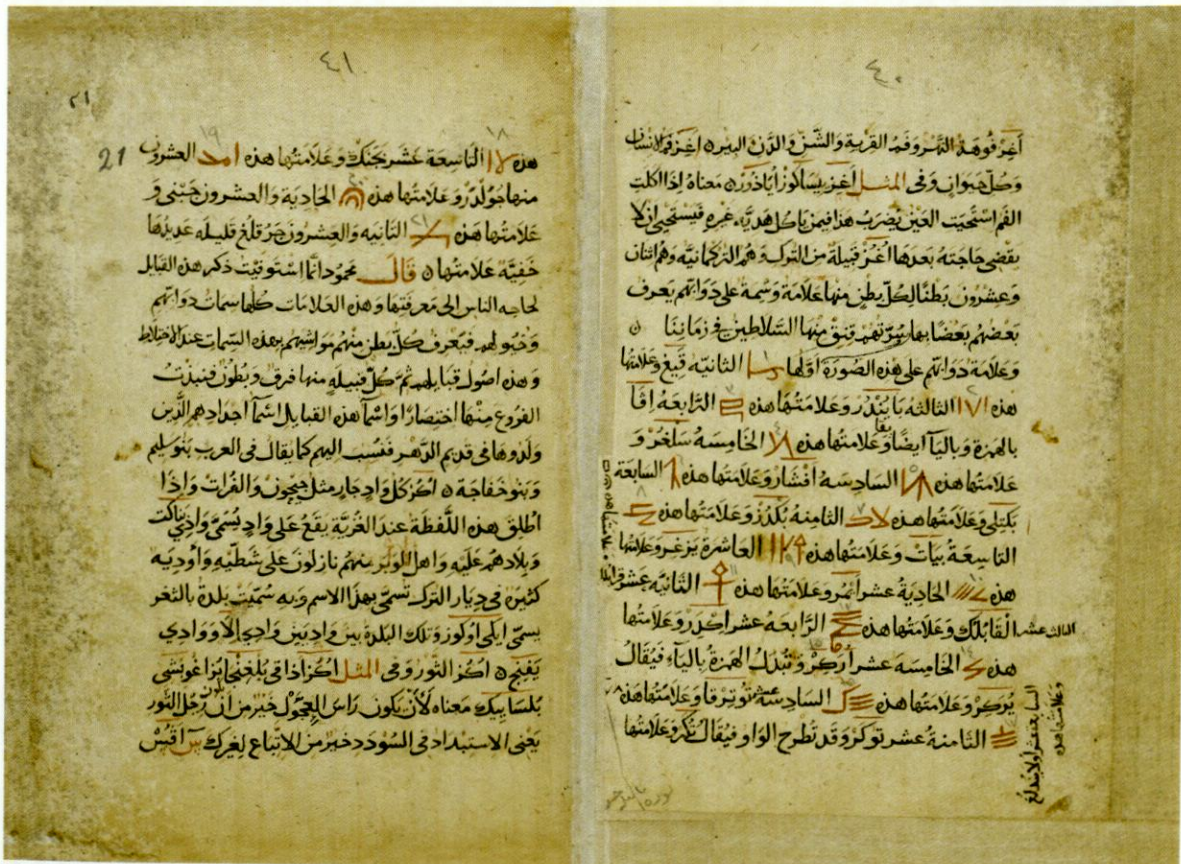 ٤٠
اَغِز فُوهَة النَّهْر وَفَمُ القِرْبةِ والشَّنِّ والدَّنِّ البير ٥ اَغِز فَمُ الانسان
وَكُلِّ حَيَوان وَفى المثل اَغِز ييسا كوز اُياذور ٥ معناهُ اِذا اكلت
الفم استحيت العَين يُضرَبُ هذا فيمن ياكل هَدِيَّة غيره فيستحيى ان لا
يقضى حاجَتهُ بَعدَها اُغُز قبيلة من الترك وهُمُ التركمانيّه وهم اثنان
وَعشرون بَطنًا لكلّ بطن منها عَلامَة وَسْمة على دَوَابّهم يعرف
بعضهم بعضًا بها سُرّتهم قنق منها السّلاطين فى زمَانِنا ٥
وَعلامَة دوَابّهم على هذه الصّورَة اوّلها الثانيّه قَيِغ وعلامتها
هذه الثالثه بَايُنْدُر وَعلامَتُها هذه الرَّابعَه اِفَا
بالهمزة وبالياَ ايضًا وعلامتها هذه الخامسَه سَلغُر وَ
عَلامتها هذه السادسَه افشار وعَلامتها هذه السابعَة
بكتلى وعَلامتُها هذه الثامنه بُكدُز وعَلامَتُها هذه
التاسعَةُ بيَات وَعَلامَتها هذه العاشرة يَزغر وعلامتها
هذه الحاديَةُ عشر اَيمُر وعلامتُها هذه الثانيَه عَشر
القابُلك وَعلامَتُها هذه الرَّابعَه عشر اكدر وعَلامتها
الثالث عشر
هذه الخامسَه عَشر اُركِز وتبدَلُ الهمزةُ بالياَء فيُقالُ
يُركِز وعَلامَتُها هذه السادسَه عشر توترقا وعَلامتُها هذه
الثامنةُ عشر توكر وَقد تطرح الوَاو فيُقالُ تُكر وعَلامَتُها
السابعة عشر اولايندلغ
وعلامتها هذه
٤١
٢١
21
هذه التاسعَة عَشر بجنك وعَلامتُها هذه العشرون
منها جُولدُر وعَلامتها هذه الحاديَة والعشرون جبنى وَ
عَلامتُها هذه الثانيه والعِشرون جَرُقلُغ قليله عَديدُها
خَفِيَّة علامتها ٥ قَالَ محمُود انّما استوفيت ذكر هذه القبايل
لحاجه الناس الى مَعرفتها وهذه العلامات كلّها سمات دوابّهم
وخيُولهم فيَعرف كلّ بطن منهُم مَوَاشيهم بهذه السّمات عند الاختلاط
وهذه اصول قبايلهم ثمّ كلّ قبيله منها فرق وبطون فنبذت
الفروع منهَا اختصارًا واسمآ هذه القبايل اسمآ اجدادهم الّذين
ولدوهَا فى قديم الدَّهر فنُسب اليهم كما يقال فى العرب بنو سليم
وَبنو خفاجَة ٥ اكُز كل وادٍ جارٍ مثل جيحون والفرات واذا
اطلق هذه اللّفظة عند الغُزّيَة يقع على وادٍ يُسَمّى وادى بناكت
وَبلادهم عَليه وَاهل الوبَر منهم نازلون على شطّيه وَاوديه
كثيرة فى ديار الترك تسمّى بهذا الاسم وبه سُمّيت بلدة بالثغر
يسمّى ايكى اوكوز وتلك البلدة بين واديَين وادى الا ووادى
يفنج ٥ اكُز الثور وَفى المثل اكُز اذاقى بُلغنجا بُزاغو نشى
بُلسا ييك مَعناه لَأن يكون رَاس العجّول خيرٌ من ان يكون رجُل الثّور
يعنى الاستبداد فى السّودد خيرٌ من الاتباع لِغيرك